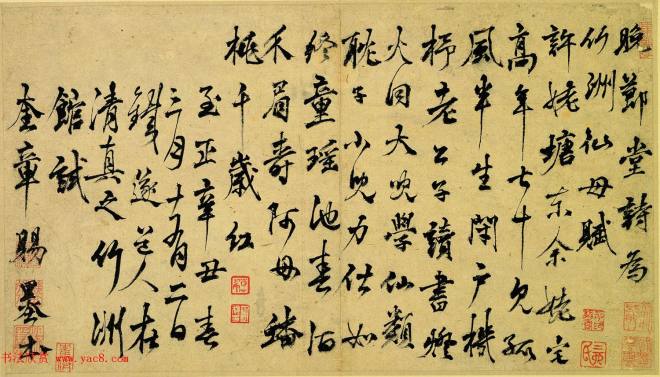 晚節堂詩為
竹洲仙母賦
許姥塘東余姥宅
高年七十見孤
風半生閉户機
杼老公子讀書燈
火同大兒學仙類
聃子小兒力仕如
終童瑶池春酒
介眉壽阿母蟠
桃千歲紅
至正辛丑春
三月十有二日
鐵篴道人在
清真之竹洲
館試
奎章賜墨書
书法欣赏 www.yac8.com